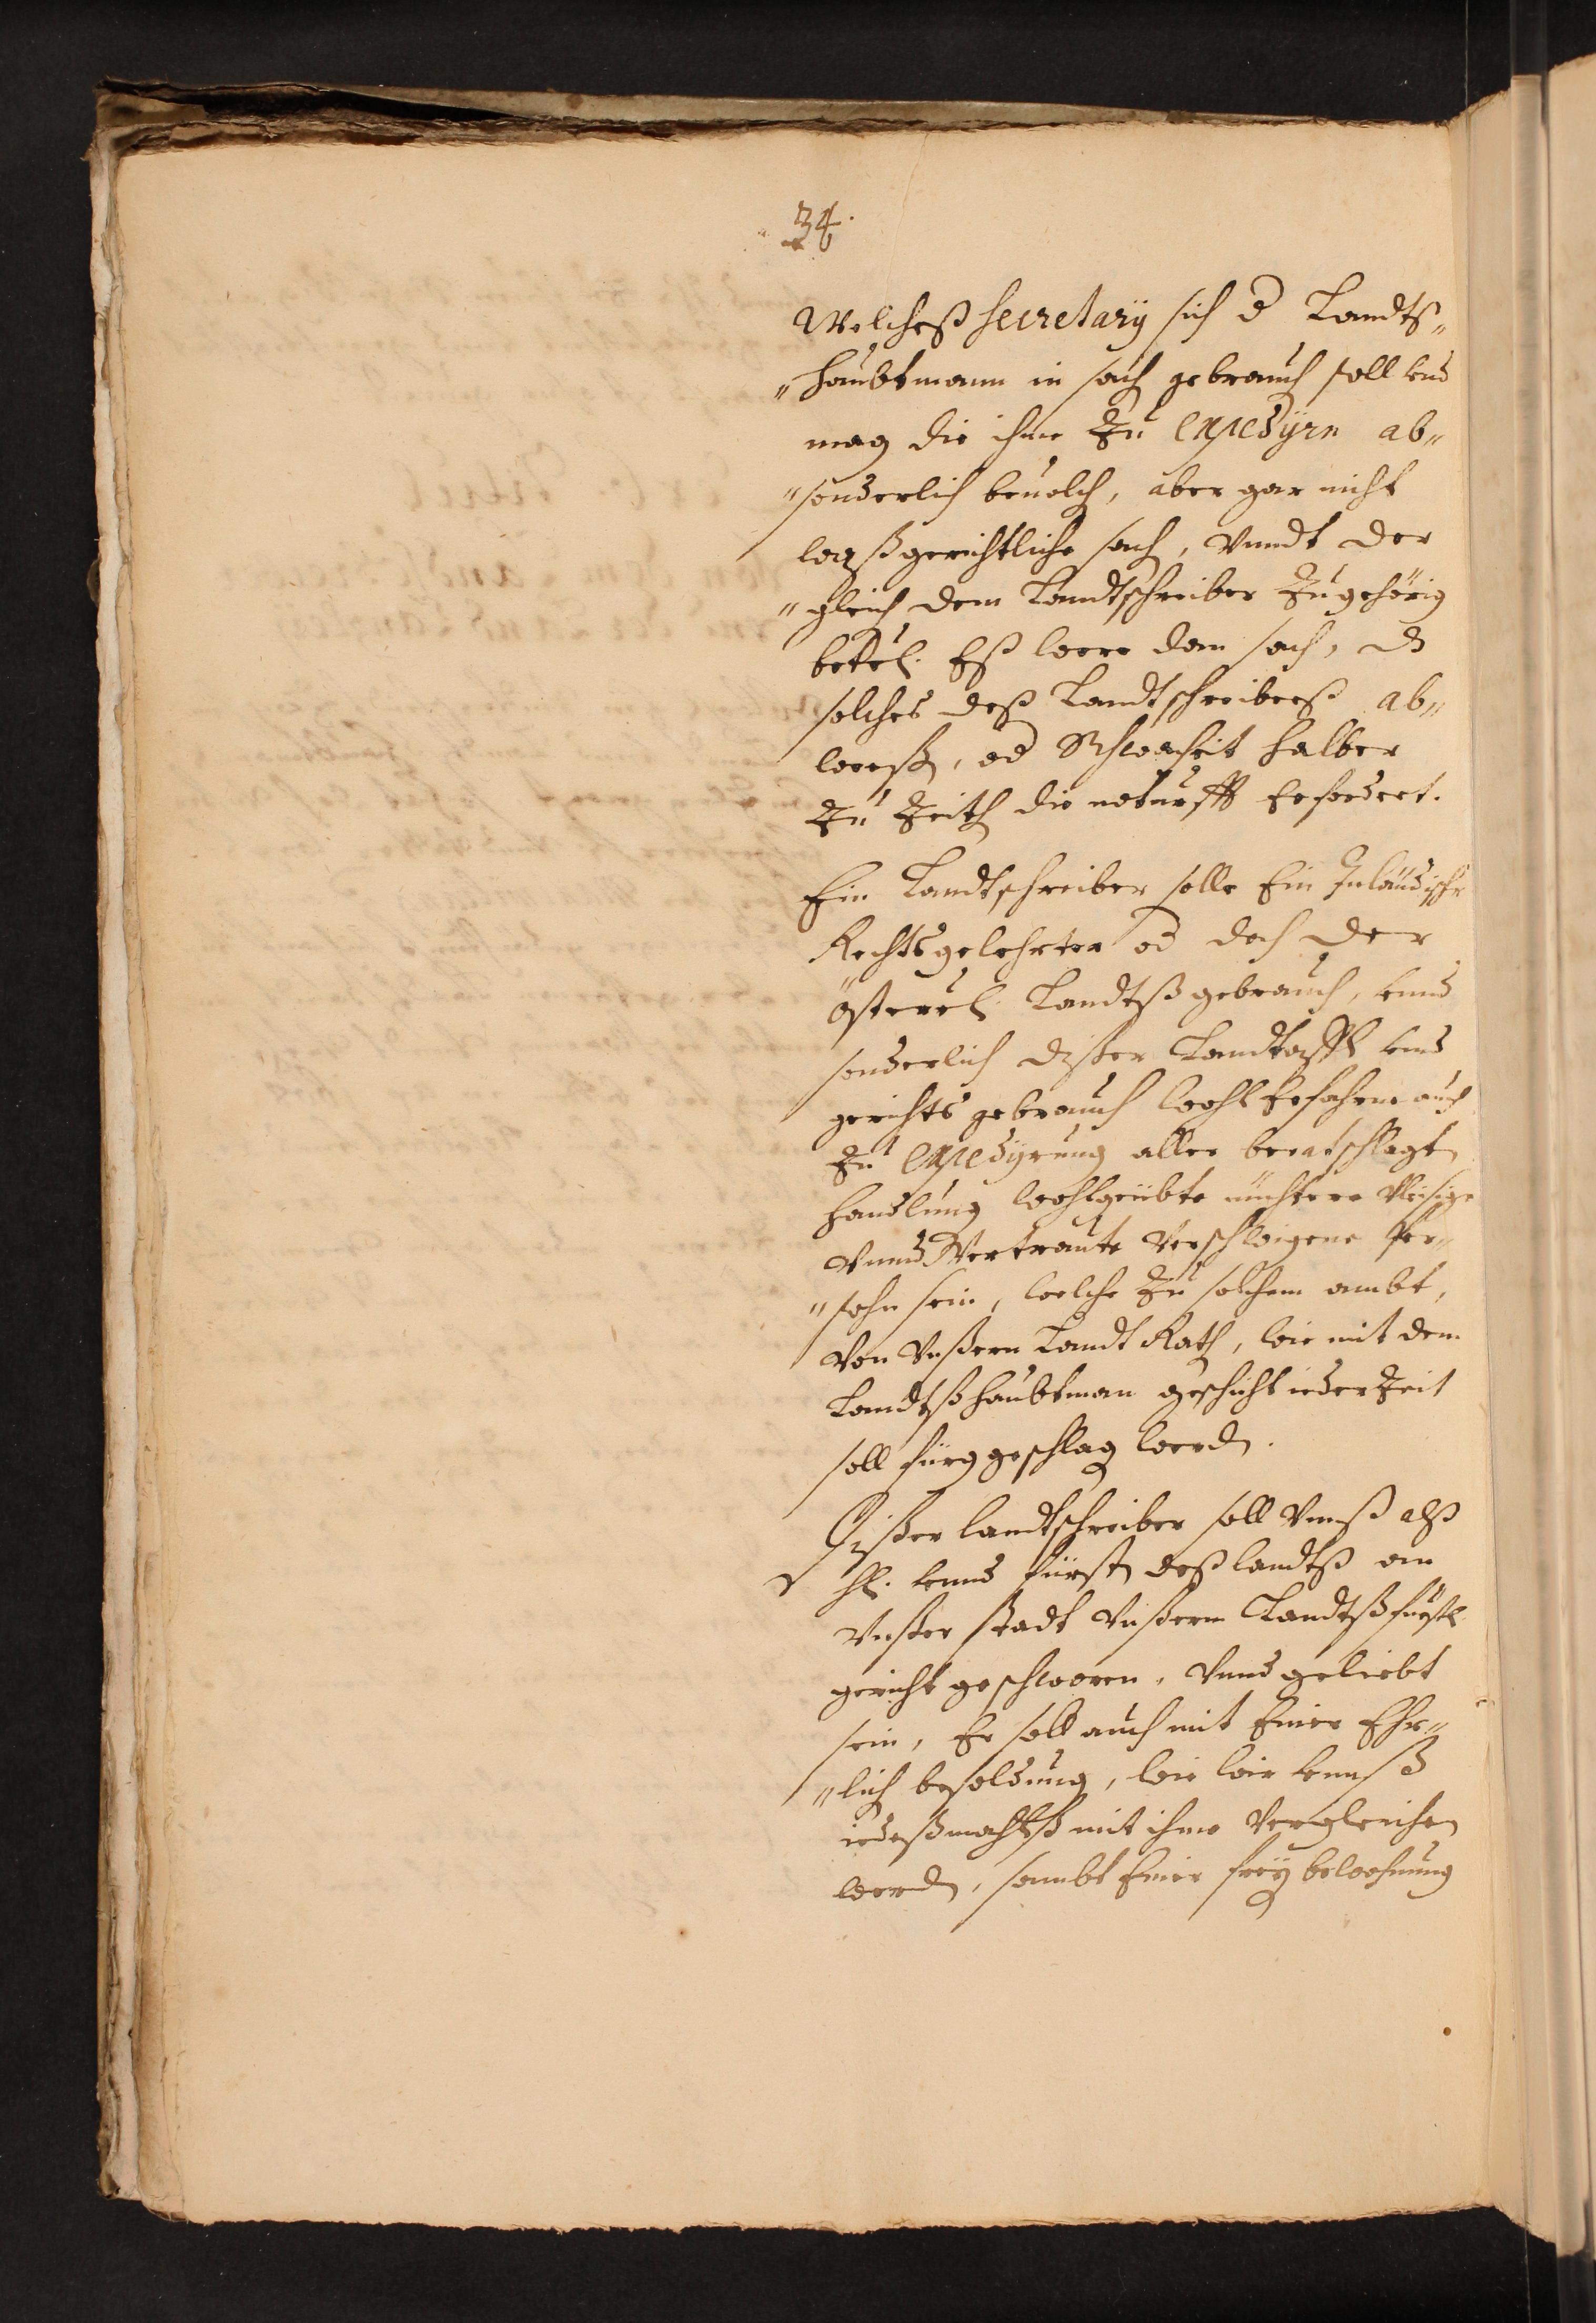 34.
Welcheß Secretarÿ sich d Landts„
„haubtmann in sach gebrauch soll vnd
mag die ihme Zu expedÿrn ab„
„sonderlich beuolch, aber gar nicht
waß gerichtliche sach, Vnndt der
„gleich dem Landtschreiber Zugehörig
betrl. Eß were dan sach, dz
solches deß Landtschreiberß ab„
weeß, od Schwacheit halber
Zu Zeith die noturfft Erfordert.
Ein Landtschreiber solle Ein Inländischr
Rechtsgelehrter od doch der
össterrl. Landtßgebrauch, vnnd
sonderlich dißer Landtafft vnd
gerichts gebrauch wohl Erfahrne auch
Zu expedÿrung aller beratschlagten
handlung wohlgeübte nüchtere Vleisige
Vnnd Vertraute Verschwigene Per„
„sohn sein, welche Zu solchem ambt,
Von Vnßern Landt Rath, wie mit dem
Landtßhaubtman geschicht iederZeit
soll fürgeschlag werdn.
Dißer landtschreiber soll Vnnß alß
hl. vnnd fürstn deß landtß an
Vnßer stadt Vnßerm Landtßfürstl.
gericht geschworen, Vnnd geliebt
sein, Er soll auch mit Einer Ehr„
„lich besoldung, wie wir vnnß
iedeßmahlß mit ihme Vergleichen
werdn, sambt Einer freÿ bewohnung